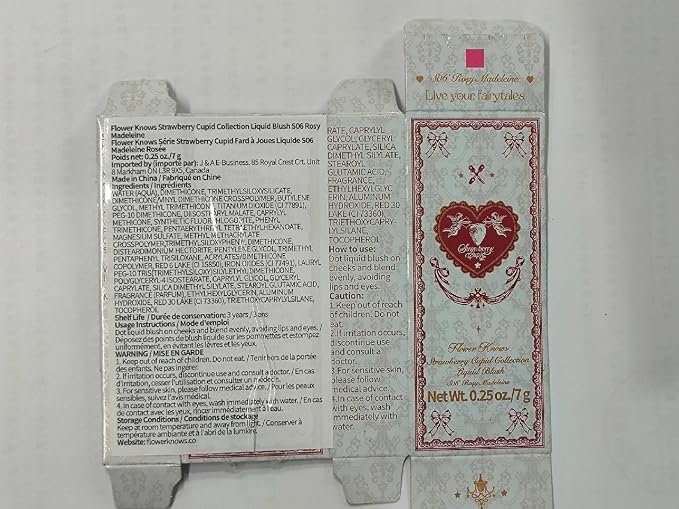 Flower Knows Strawberry Cupid Collection Liquid Blush S06 Rosy
Madeleine
Flower Knows Série Strawberry Cupid Fard à Joues Liquide S06
Madeleine Rosée
Poids net: 0.25 oz/7 g
Imported by (importé par): J & A E-Business. 85 Royal Crest Crt. Unit
8 Markham ON L3R 9X5, Canada
Made in China / Fabriqué en Chine
Ingredients / Ingrédients
WATER (AQUA), DIMETHICONE, TRIMETHYLSILOXYSILICATE,
DIMETHICONE/VINYL DIMETHICONE CROSSPOLYMER, BUTYLENE
GLYCOL, METHYL TRIMETHICONE, TITANIUM DIOXIDE (CI 77891),
PEG-10 DIMETHICONE, DIISOSTEARYL MALATE, CAPRYLYL
METHICONE, SYNTHETIC FLUORPHLOGOPITE, PHENYL
TRIMETHICONE, PENTAERYTHRITYL TETRAETHYLHEXANOATE,
MAGNESIUM SULFATE, METHYL METHACRYLATE
CROSSPOLYMER, TRIMETHYLSILOXYPHENYL DIMETHICONE,
DISTEARDIMONIUM HECTORITE, PENTYLENE GLYCOL, TRIMETHYL
PENTAPHENYL TRISILOXANE, ACRYLATES/DIMETHICONE
COPOLYMER, RED 6 LAKE (CI 15850), IRON OXIDES (CI 77491), LAURYL
PEG-10 TRIS(TRIMETHYLSILOXY)SILYLETHYL DIMETHICONE,
POLYGLYCERYL-4 ISOSTEARATE, CAPRYLYL GLYCOL, GLYCERYL
CAPRYLATE, SILICA DIMETHYL SILYLATE, STEAROYL GLUTAMIC ACID,
FRAGRANCE (PARFUM), ETHYLHEXYLGLYCERIN, ALUMINUM
HYDROXIDE, RED 30 LAKE (CI 73360), TRIETHOXYCAPRYLYLSILANE,
TOCOPHEROL
Shelf Life / Durée de conservation: 3 years / 3ans
Usage Instructions / Mode d'emploi
Dot liquid blush on cheeks and blend evenly, avoiding lips and eyes. /
Déposez des points de blush liquide sur les pommettes et estompez
uniformément, en évitant les lèvres et les yeux.
WARNING / MISE EN GARDE
1. Keep out of reach of children. Do not eat. / Tenir hors de la portée
des enfants. Ne pas ingérer.
2. If irritation occurs, discontinue use and consult a doctor. / En cas
d'irritation, cesser l'utilisation et consulter un médecin.
3. For sensitive skin, please follow medical advice. / Pour les peaux
sensibles, suivez l'avis médical.
4. In case of contact with eyes, wash immediately with water. / En cas
de contact avec les yeux, rincer immédiatement à l'eau.
Storage Conditions / Conditions de stockage
Keep at room temperature and away from light. / Conserver à
température ambiante et à l'abri de la lumière.
Website: flowerknows.co
RATE, CAPRYLYL
GLYCOL, GLYCERYL
CAPRYLATE, SILICA
DIMETHYL SILYLATE,
STEAROYL
GLUTAMIC ACID,
FRAGRANCE,
ETHYLHEXYLGLYC
ERIN, ALUMINUM
HYDROXIDE, RED 30
LAKE (CI 73360),
TRIETHOXYCAPRY-
LYLSILANE,
TOCOPHEROL
How to use:
Dot liquid blush on
cheeks and blend
evenly, avoiding
lips and eyes.
Caution:
1. Keep out of reach
of children. Do not
eat.
2. If irritation occurs,
discontinue use
and consult a
doctor.
3. For sensitive skin,
please follow
medical advice.
4. In case of contact
with eyes, wash
immediately with
water.
S06 Rosy Madeleine
Live your fairytales
Strawberry
Cupid
Flower Knows
Strawberry Cupid Collection
Liquid Blush
S06 Rosy Madeleine
Net Wt. 0.25 oz./7 g